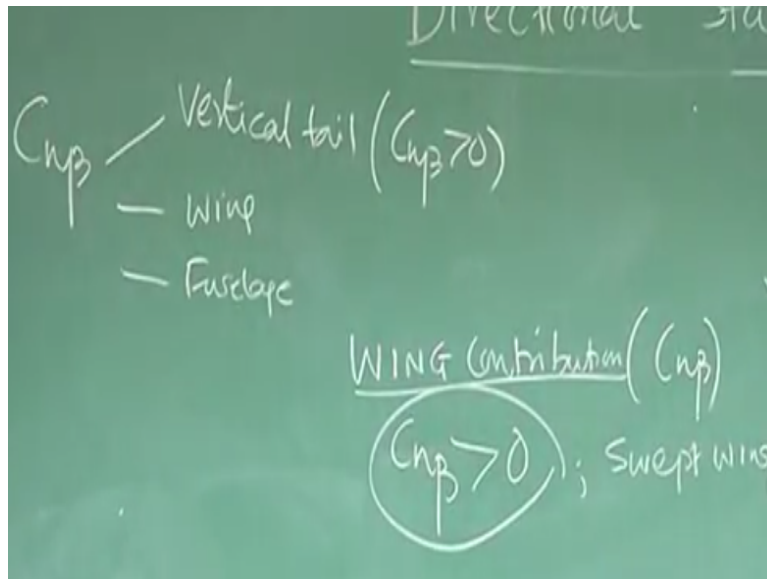 Directional sta
Cnβ
Vertical tail (Cnβ>0)
— Wing
— Fuselage
WING Contribution (Cnβ)
Cnβ>0 ; Swept wing